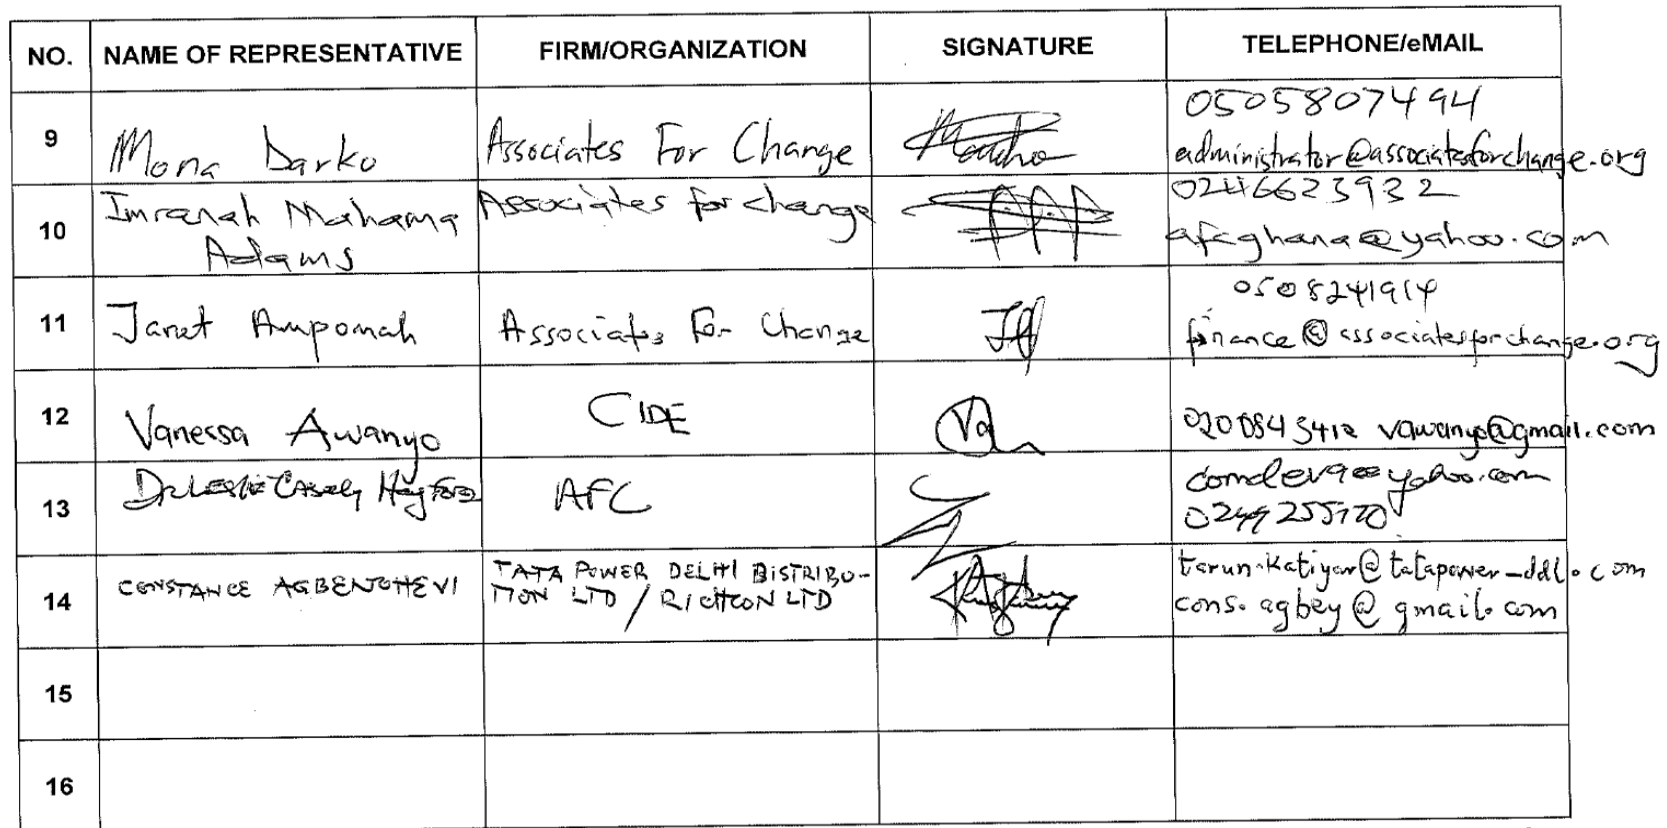 NO. NAME OF REPRESENTATIVE FIRM/ORGANIZATION SIGNATURE TELEPHONE/eMAIL
9 Mona Darko Associates For Change 0505807494
administrator@associatesforchange.org
10 Imranah Mahama Adams Associates for change 0246623932
afcghana@yahoo.com
11 Janet Ampomah Associates For Change 0508241914
finance@associatesforchange.org
12 Vanessa Awanyo CIDE vawanyo@gmail.com
13 Dr Leslie Casely Hayford AFC
14 CONSTANCE AGBENOHEVI TATA POWER DELHI DISTRIBU-
TION LTD / RICHCON LTD
tarun.katiyar@tatapower-ddl.com
cons.agbey@gmail.com
15
16